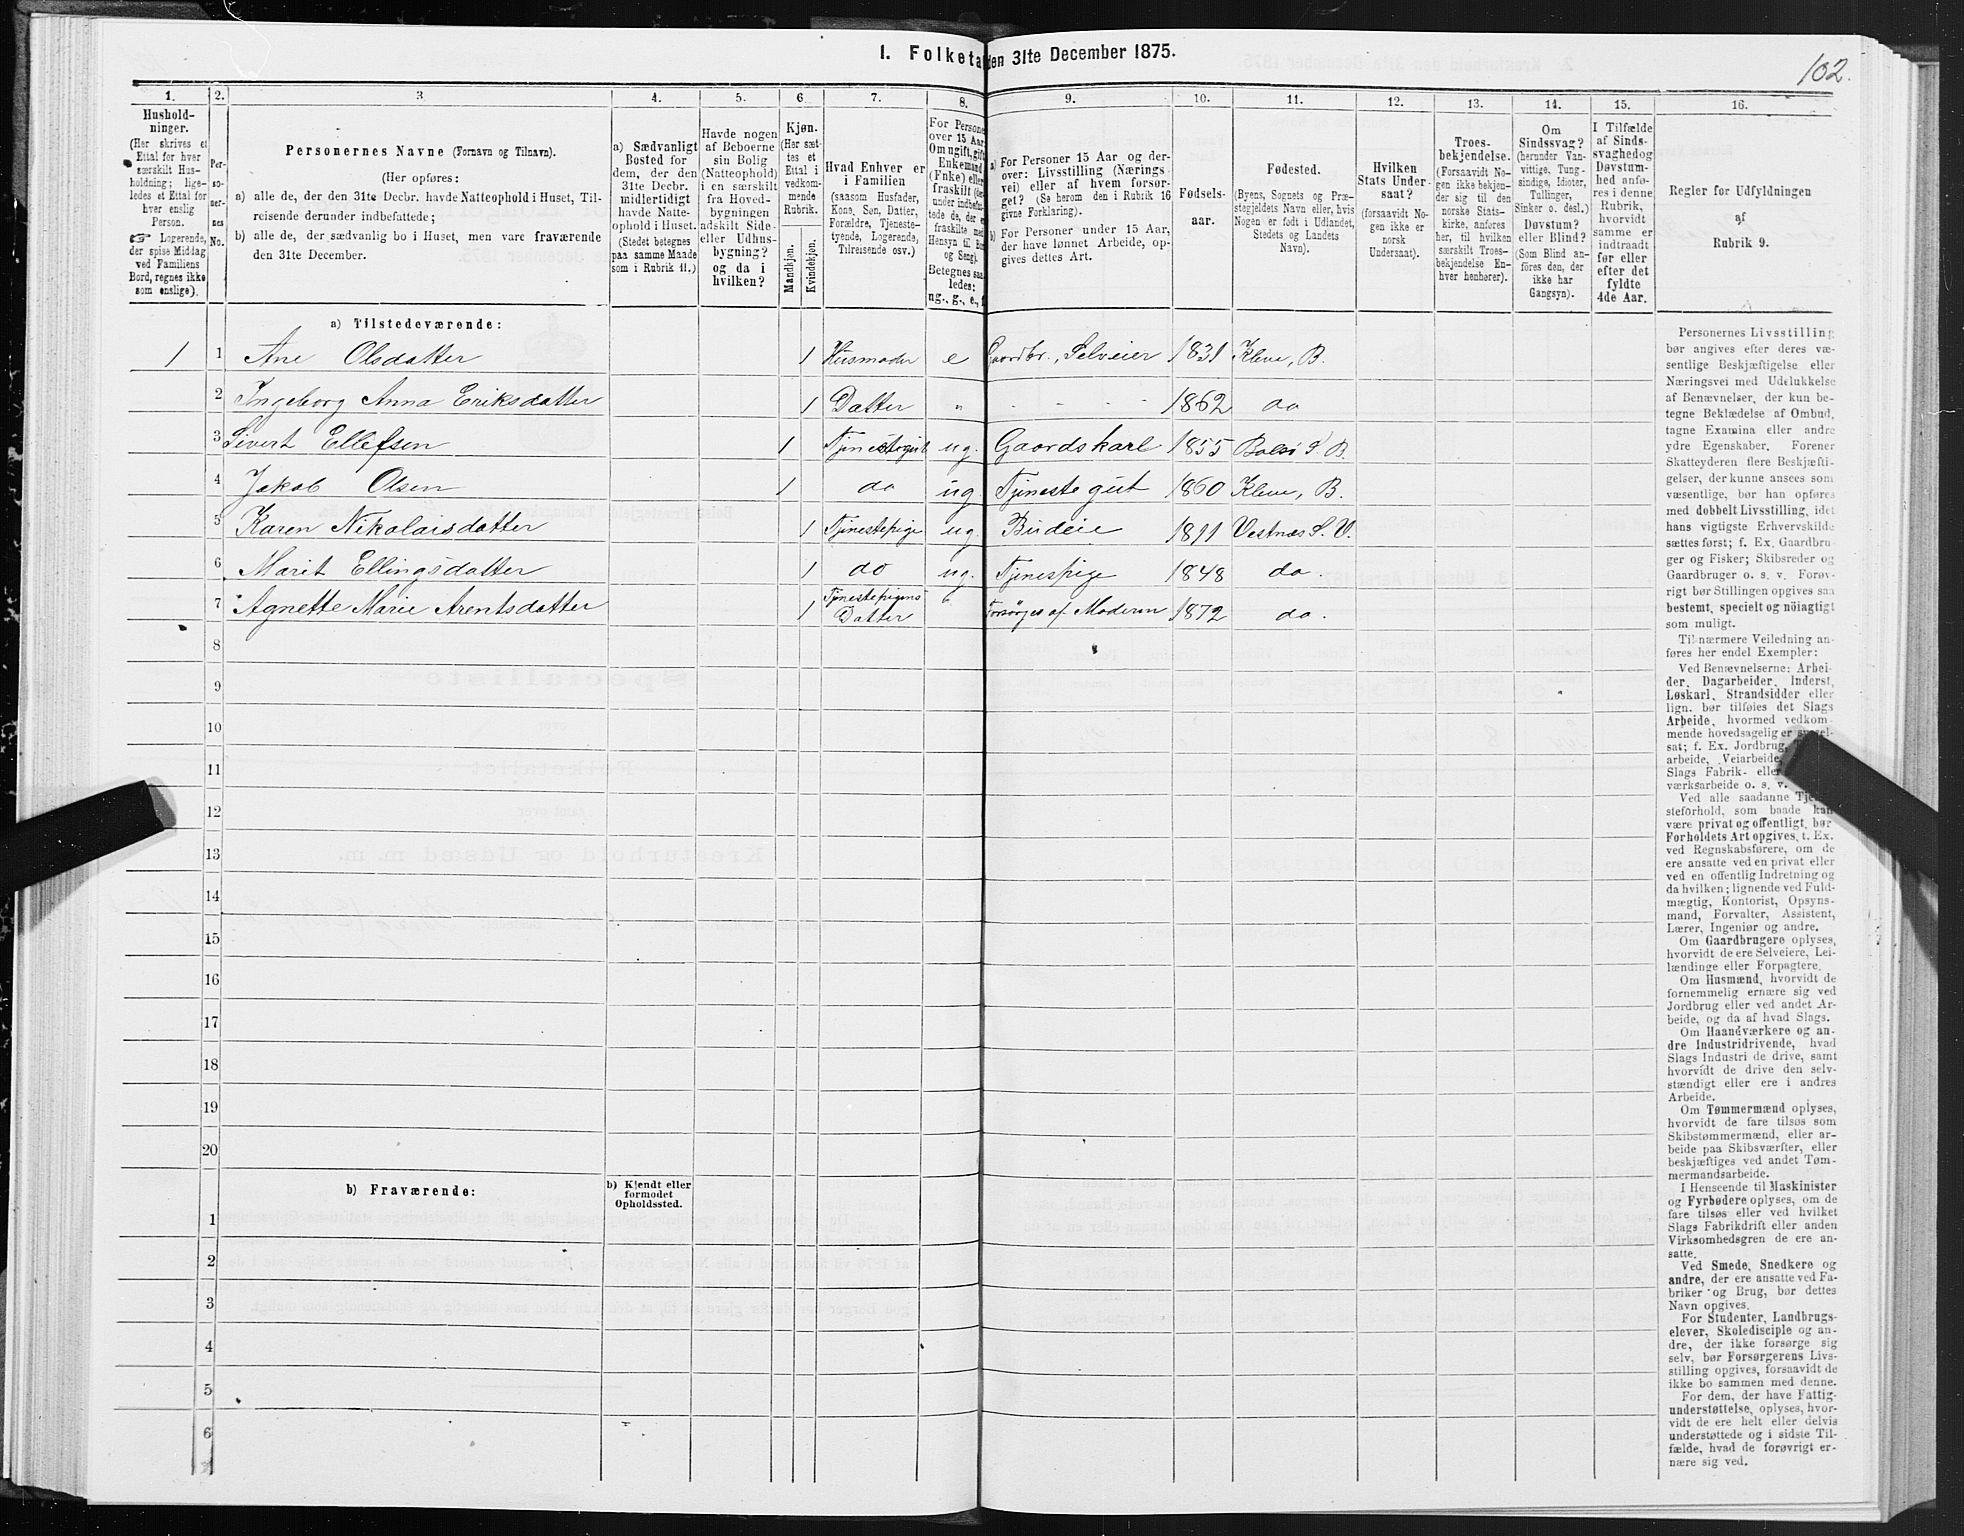 1. Folketa
den 31te December 1875.
102.
1.
2.
3.
4.
5.
6
7.
8.
9.
10.
11.
12.
13.
14.
15.
16.
Hushold-
ninger.
(Her skrives et
Ettal for hver
særskilt Hus-
holdning; lige-
ledes et Ettal for
hver enslig
Person.
☞ Logerende,
der spise Middag
ved Familiens
Bord, regnes ikke
som enslige).
Per-
so-
ner-
nes
No.
Personernes Navne (Fornavn og Tilnavn).
(Her opføres:
a) alle de, der den 31te Decbr. havde Natteophold i Huset, Til-
reisende derunder indbefattede;
b) alle de, der sædvanlig bo i Huset, men vare fraværende
den 31te December.
a) Sædvanligt
Bosted for
dem, der den
31te Decbr.
midlertidigt
havde Natte-
ophold i Huset.
(Stedet betegnes
paa samme Maade
som i Rubrik 11.)
Havde nogen
af Beboerne
sin Bolig
(Natteophold)
i en særskilt
fra Hoved-
bygningen
adskilt Side-
eller Udhus-
bygning?
og da i
hvilken?
Kjøn.
(Her sæt-
tes et
Ettal i
vedkom-
mende
Rubrik.
Mandkjøn.
Kvindekjøn.
Hvad Enhver er
i Familien
(saasom Husfader,
Kone, Søn, Datter,
Forældre, Tjeneste-
tyende, Logerende,
Tilreisende osv.)
For Persone
over 15 Aar
Om ugift, gift
Enkemand
(Enke) eller
fraskilt
Betegnes saa-
ledes:
ug., g., e., f
a) For Personer 15 Aar og der-
over: Livsstilling (Nærings-
vei) eller af hvem forsør-
get? (Se herom den i Rubrik 16
givne Forklaring).
b) For Personer under 15 Aar,
der have lønnet Arbeide, op-
gives dettes Art.
Fødsels-
aar.
Fødested.
(Byens, Sognets og Præ-
stegjeldets Navn eller, hvis
Nogen er født i Udlandet,
Stedets og Landets
Navn).
Hvilken
Stats Under-
saat?
(forsaavidt No-
gen ikke er
norsk
Undersaat).
Troes-
bekjendelse.
(Forsaavidt No-
gen ikke bekjen-
der sig til den
norske Stats-
kirke, anføres
her, til hvilken
særskilt Troes-
bekjendelse En-
hver henhører).
Om
Sindssvag?
(herunder Van-
vittige, Tung-
sindige, Idioter,
Tullinger,
Sinker o. desl.)
Døvstum?
eller Blind?
(Som Blind an-
føres den, der
ikke har
Gangsyn).
I Tilfælde
af Sinds-
svaghed og
Døvstum-
hed anfø-
res i denne
Rubrik,
hvorvidt
samme er
indtraadt
før eller
efter det
fyldte
4de Aar.
Regler for Udfyldningen
af
Rubrik 9.
a) Tilstedeværende:
1 1 Ane Olsdatter 1 Husmoder e Gaardbr., Selveier 1831 Kleve, B.
2 Ingeborg Anna Eriksdatter 1 Datter " - - - - 1862 do
3 Sivert Ellefsen 1 Tjenestegut ug. Gaardskarl 1855 Bolsø S. B.
4 Jakob Olsen 1 do ug. Tjenestegut 1860 Kleve, B.
5 Karen Nikolaisdatter 1 Tjenestepige ug. Budeie 1811 Vestnæs S. V.
6 Marit Ellingsdatter 1 do ug. Tjenespige 1848 do.
7 Agnette Marie Arentsdatter 1 Tjenestepigens Datter " Forsørges af Moderen 1872 do.
8
9
10
11
12
13
14
15
16
17
18
19
20
b) Fraværende:
b) Kjendt eller
formodet
Opholdssted.
1
2
3
4
5
6
Personernes Livsstilling
bør angives efter deres væ-
sentlige Beskjæftigelse eller
Næringsvei med Udelukkelse
af Benævnelser, der kun be-
tegne Beklædelse af Ombud,
tagne Examina eller andre
ydre Egenskaber. Forener
Skatteyderen flere Beskjæfti-
gelser, der kunne ansees som
væsentlige, bør han opføres
med dobbelt Livsstilling, idet
hans vigtigste Erhvervskilde
sættes først; f. Ex. Gaardbru-
ger og Fisker; Skibsreder og
Gaardbruger o. s. v. Forøv-
rigt bør Stillingen opgives saa
bestemt, specielt og nöiagtigt
som muligt.
Til nærmere Veiledning an-
føres her endel Exempler:
Ved Benævnelserne: Arbei-
der, Dagarbeider, Inderst,
Løskarl, Strandsidder eller
lign. bør tilføies det Slags
Arbeide, hvormed vedkom-
mende hovedsagelig er syssel-
sat; f. Ex. Jordbrug,
arbeide, Veiarbeide,
Slags Fabrik- eller
værksarbeide o. s. v.
Ved alle saadanne Tjene-
steforhold, som baade kan
være privat og offentligt, bør
Forholdets Art opgives, t. Ex.
ved Regnskabsførere, om de
ere ansatte ved en privat eller
ved en offentlig Indretning og
da hvilken; lignende ved Fuld-
mægtig, Kontorist, Opsyns-
mand, Forvalter, Assistent,
Lærer, Ingeniør og andre.
Om Gaardbrugere oplyses,
hvorvidt de ere Selveiere, Lei-
lændinge eller Forpagtere.
Om Husmænd, hvorvidt de
fornemmelig ernære sig ved
Jordbrug eller ved andet Ar-
beide, og da af hvad Slags.
Om Haandværkere og an-
dre Industridrivende, hvad
Slags Industri de drive, samt
hvorvidt de drive den selv-
stændigt eller ere i andres
Arbeide.
Om Tømmermænd oplyses,
hvorvidt de fare tilsøs som
Skibstømmermænd, eller ar-
beide paa Skibsværfter, eller
beskjæftiges ved andet Tøm-
mermandsarbeide.
I Henseende til Maskinister
og Fyrbødere oplyses, om de
fare tilsøs eller ved hvilket
Slags Fabrikdrift eller anden
Virksomhedsgren de ere an-
satte.
Ved Smede, Snedkere og
andre, der ere ansatte ved Fa-
briker og Brug, bør dettes
Navn opgives.
For Studenter, Landbrugs-
elever, Skoledisciple og an-
dre, der ikke forsørge sig
selv, bør Forsørgerens Livs-
stilling opgives, forsaavidt de
ikke bo sammen med denne.
For dem, der have Fattig-
understøttelse, oplyses, hvor-
vidt de ere helt eller delvis
understøttede og i sidste Til-
fælde, hvad de forøvrigt er-
nære sig ved.